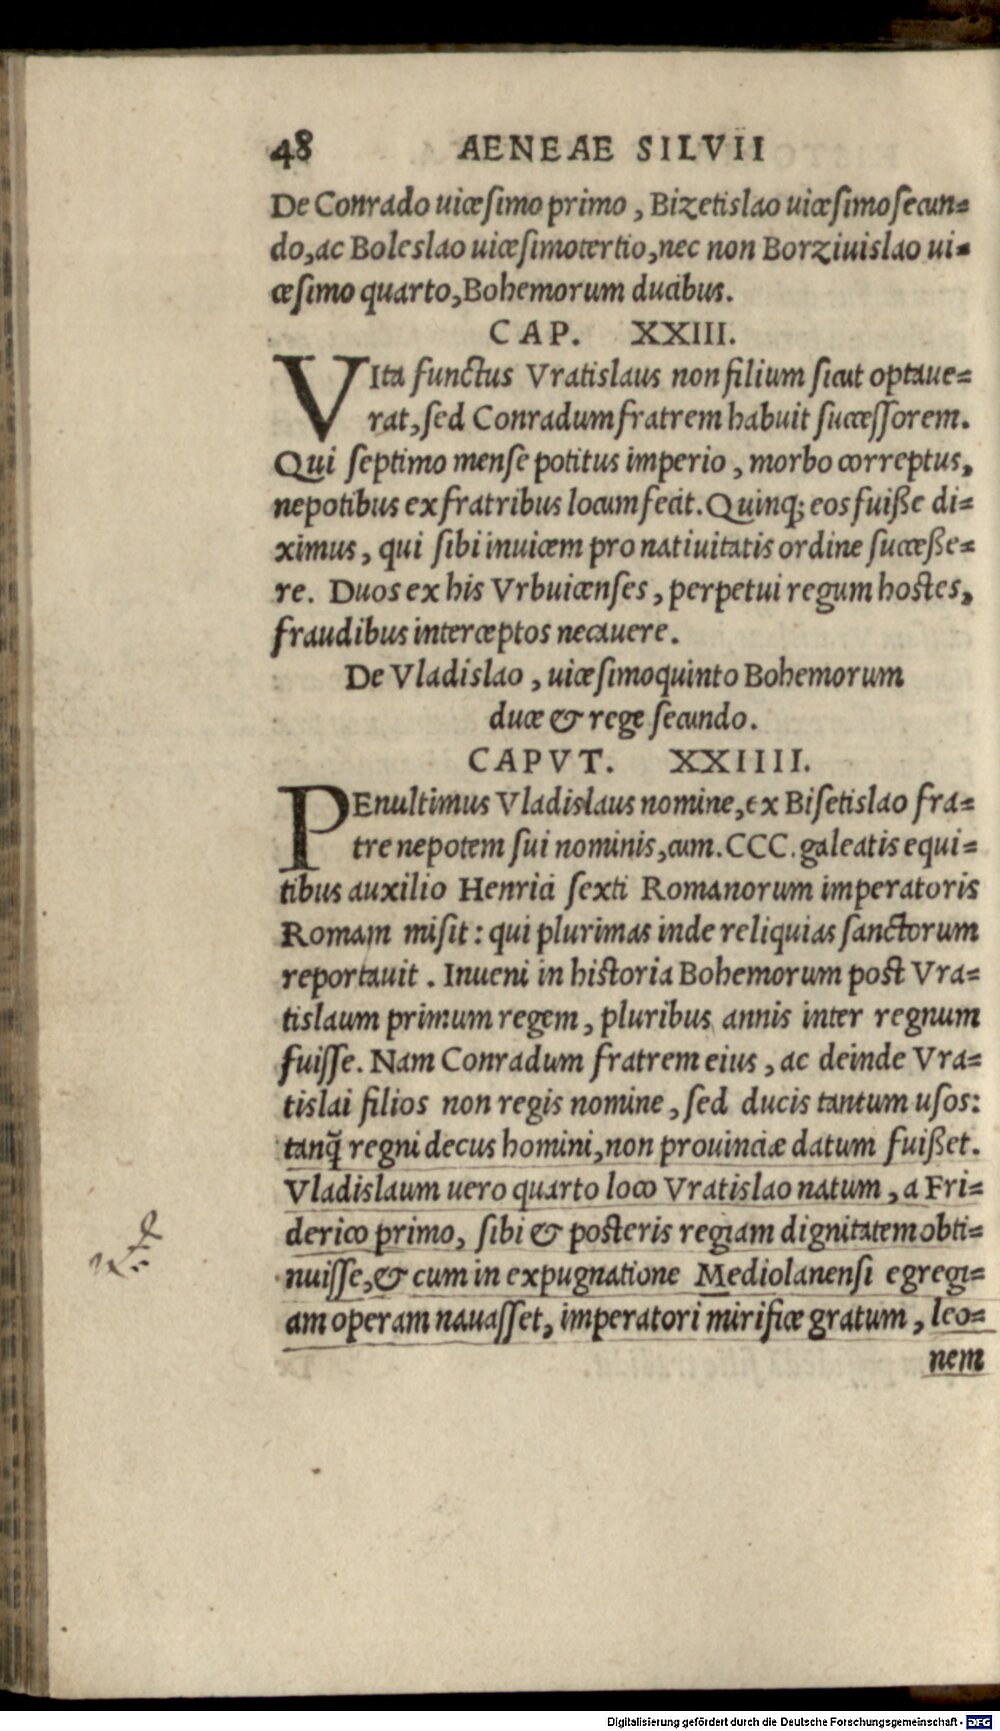 48 AENEAE SILVII
De Conrado uicesimo primo, Bizetislao uicesimosecun-
do, ac Boleslao uicesimotertio, nec non Borziuislao ui-
cesimo quarto, Bohemorum ducibus.
CAP. XXIII.
VIta functus Vratislaus non filium sicut optaue-
rat, sed Conradum fratrem habuit successorem.
Qui septimo mense potitus imperio, morbo correptus,
nepotibus ex fratribus locum fecit. Quinq; eos fuiße di-
ximus, qui sibi inuicem pro natiuitatis ordine succeße-
re. Duos ex his Vrbuicenses, perpetui regum hostes,
fraudibus interceptos necauere.
De Vladislao, uicesimoquinto Bohemorum
duce & rege secundo.
CAPVT. XXIIII.
PEnultimus Vladislaus nomine, ex Bisetislao fra-
tre nepotem sui nominis, cum. CCC. galeatis equi-
tibus auxilio Henrici sexti Romanorum imperatoris
Romam misit: qui plurimas inde reliquias sanctorum
reportauit. Inueni in historia Bohemorum post Vra-
tislaum primum regem, pluribus annis inter regnum
fuisse. Nam Conradum fratrem eius, ac deinde Vra-
tislai filios non regis nomine, sed ducis tantum usos:
tanq̃ regni decus homini, non prouinciæ datum fuißet.
Vladislaum uero quarto loco Vratislao natum, a Fri-
derico primo, sibi & posteris regiam dignitatem obti-
nuisse, & cum in expugnatione Mediolanensi egregi-
am operam nauasset, imperatori mirifice gratum, leo-
nem
Digitalisierung gefördert durch die Deutsche Forschungsgemeinschaft - DFG